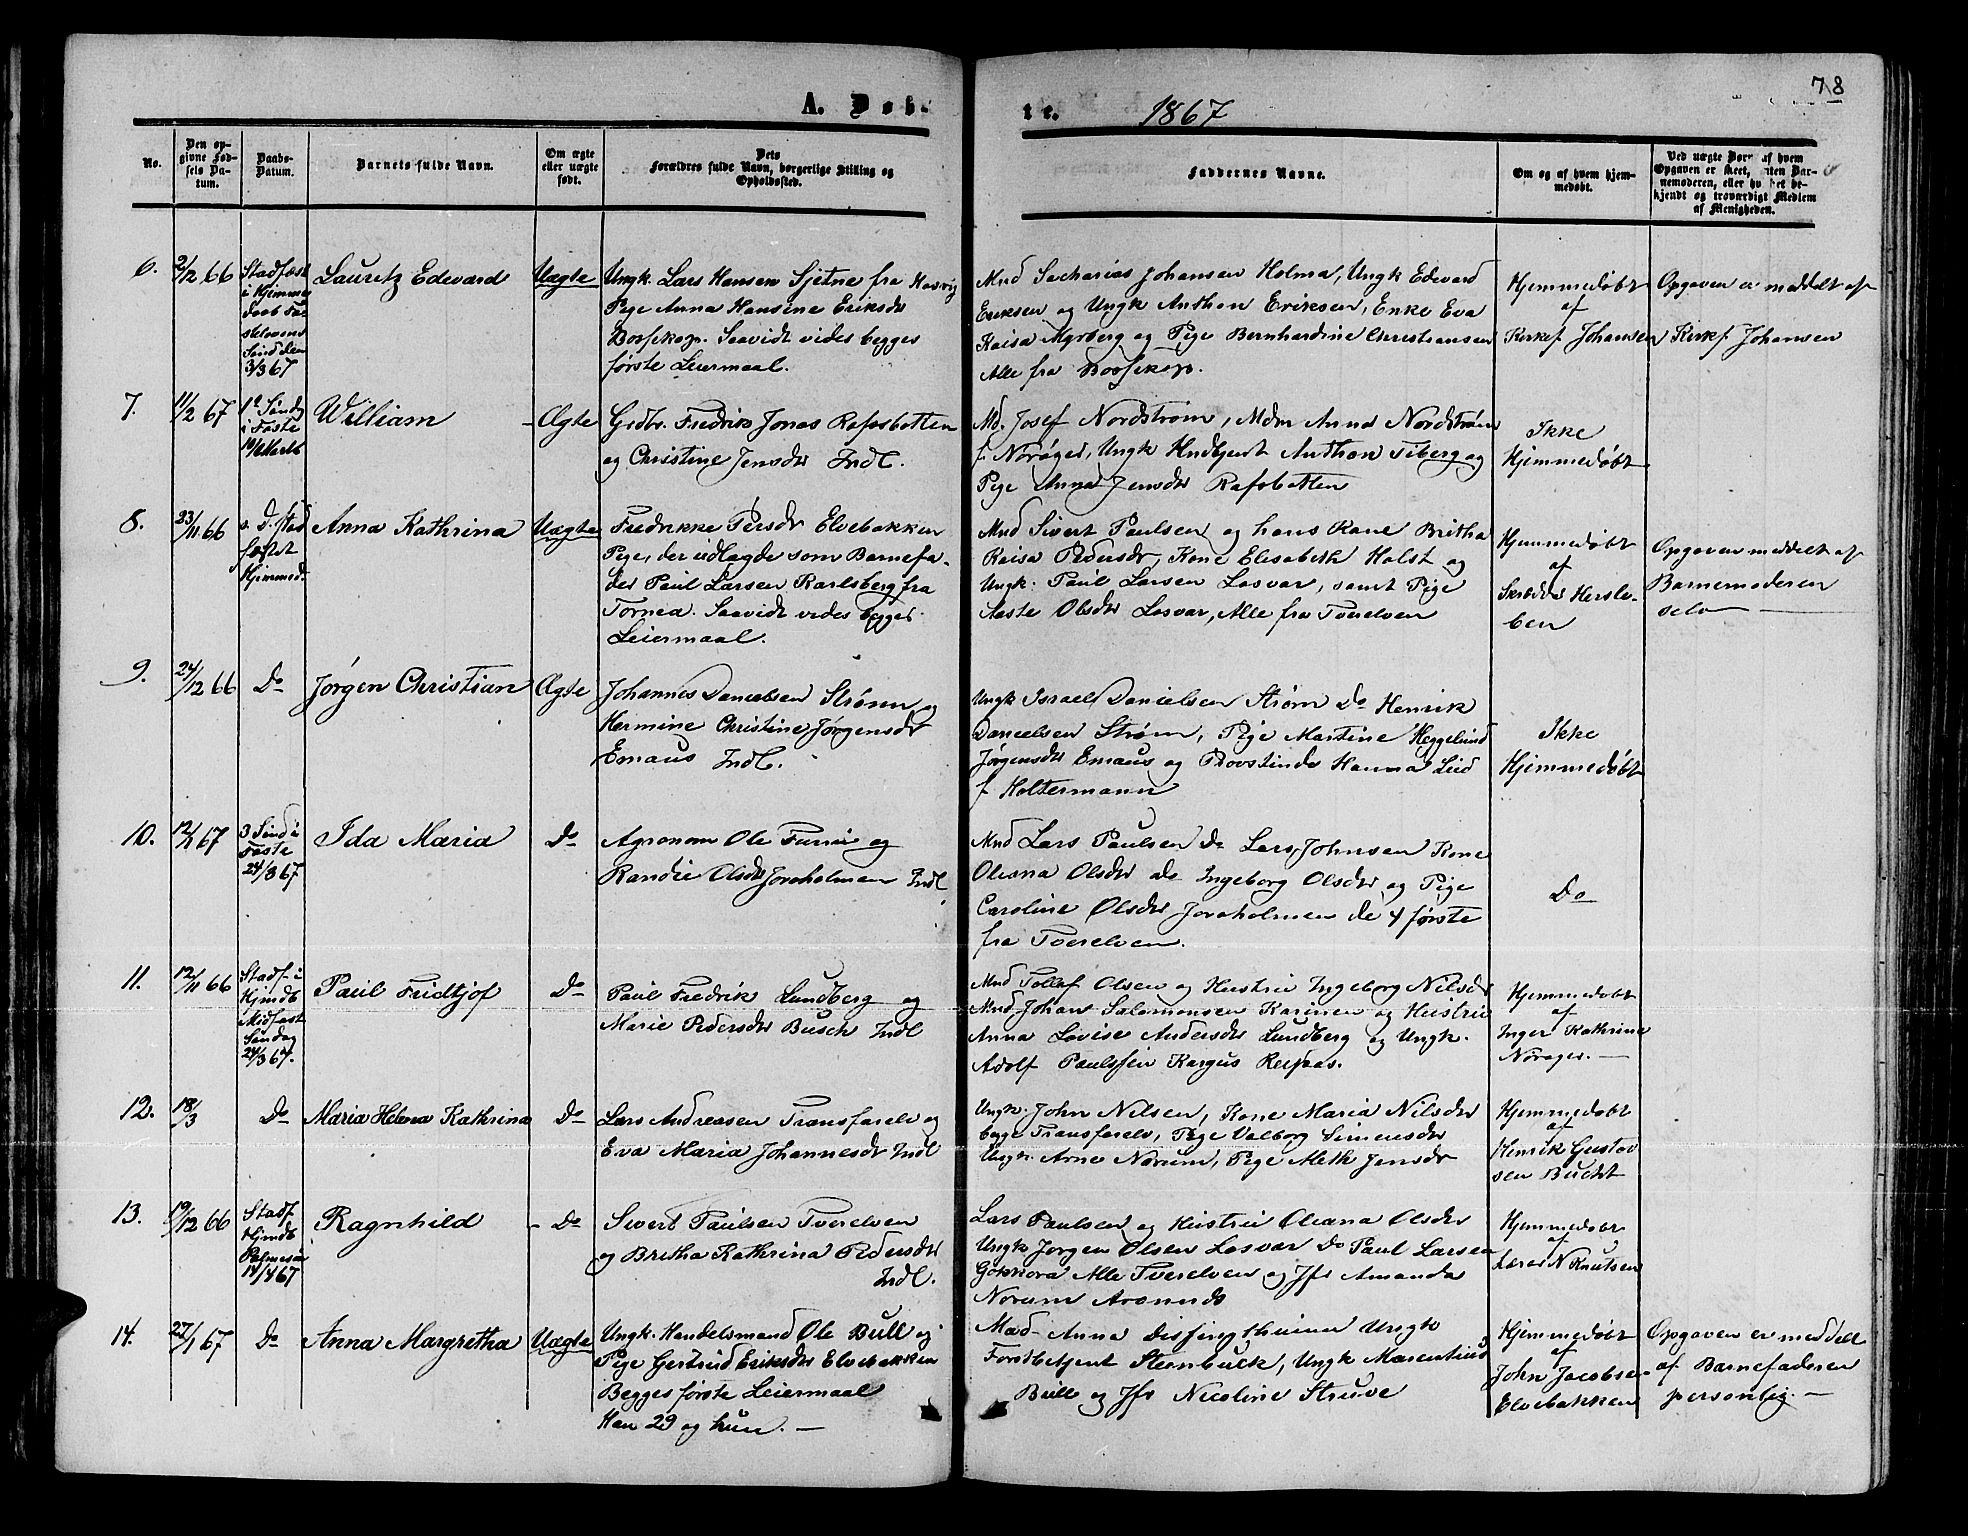 78
A. Døbte.
1867
No.
Den opgivne Fødsels Datum.
Daabs-Datum.
Barnets fulde Navn.
Om ægte eller uægte født.
Dets Forældres fulde Navn, borgerlige Stilling og Opholdssted.
Faddernes Navne.
Om og af hvem hjemmedøbt.
Ved uægte Børn af hvem Opgaven er skeet, enten Barnemoderen, eller hvilket bekjendt og troværdigt Medlem af Menigheden.
6.
2/12 66
Stadfæst
i Hjemme
daab Fa-
stelavens
Søndden
3/3 67
Lauritz Edevard
Uægte
Ungk. Lars Hansen Sjetne fra
Pige Anna Hansine Eriksdr
Bossekop. Saavidt vides begges
første Leiermaal.
Mnd Sacharias Johansen Holma, Ungk Edevard
Eriksen og Ungk Anthon Eriksen, Enke Eva
Kaisa Myrberg og Pige Bernhardine Christiansen
Alle fra Bossekop.
Hjemmedøbt
af
Kirkes. Johansen
Opgaven er meddelt af
Kirkes. Johansen
7.
11/2 67
1ste Sønd
i Faste
10/ Marts
William
Ægte
Grdbr. Fredrik Jonas Rafsbotten
og Christine Jensdr Indl.
Md. Josef Nordstrøm, Mdm Anna Nordstrøm
f. Norøger, Ungk Hndbetjent Anthon Fiberg og
Pige Anna Jensdr Rafsbotten
Ikke
Hjemmedøbt
8.
23/11 66
s. D. stad
fæstet
Hjemmed.
Anna Kathrina
Uægte
Fredrikke Persdr Elvebakken
Pige, der udlagde som Barnefa-
der Paul Larsen Karlsberg fra
Tornea. Saavidt vides begges
Leiermaal.
Mnd Sivert Paulsen og hans Kone Britha
Kaisa Pedersdr, Kone Elisabeth Holst og
Ungk. Paul Larsen Losvar, samt Pige
Aaste Olsdr Losvar, Alle fra Tverelven
Hjemmedøbt
af
Skrædder Hersle-
ben
Opgaven meddelt af
Barnemoderen
selv
9.
24/12 66
Do
Jørgen Christian
Ægte
Johannes Danielsen Strøm og
Hermine Christine Jørgensdr
Emaus Indl.
Ungk Israel Danielsen Strøm Do Henrik
Danielsen Strøm, Pige Martine Heggelund
Jørgensdr Emaus og Provstinde Hanna Lied
f. Holtermann
Ikke
Hjemmedøbt
10.
12/1 67
3 Sønd i
Faste
24/3 67
Ida Maria
Do
Agronom Ole Furu og
Randie Olsdr Joraholmen Indl.
Mnd Lars Paulsen Do Lars Johnsen Kone
Oleana Olsdr do Ingeborg Olsdr og Pige
Caroline Olsdr Joraholmen de 4 første
fra Tverelven.
Do
11.
12/11 66
Stadf. i
Hjmdb
Midfast
Søndag
24/3 67.
Paul Fridtjof
Do
Paul Fredrik Lundberg og
Marie Pedersdr Busch Indl
Mnd Tollef Olsen og Hustru Ingeborg Nilsdr
Mnd Johan Salamonsen Karinen og Hustru
Anna Lovise Andersdr Lundberg og Ungk.
Adolf Paulssen Kargus Reipas.
Hjemmedøbt
af
Inger Kathrine
Norøger.
12.
18/3
Do
Maria Helena Kathrina
Do
Lars Andreasen Transfarelv og
Eva Maria Johannesdr Indl
Ungk. John Nilsen, Kone Maria Nilsdr
begge Transfarelv, Pige Valborg Simensdr
Ungk. Arne Norum, Pige Meth Jensdr
Hjemmedøbt
af
Henrik Gustav
sen Bucht
13.
19/12 66
Stadf.
Hjmdb
Palmesøn
14/4 67
Ragnhild
Do
Sivert Paulsen Tverelven
og Britha Kathrina Pedersdr
Indl.
Lars Paulsen og Hustru Oleana Olsdr
Ungk Jørgen Olsen Losvar Do Paul Larsen
Gokkora Alle Tverelven og Jfr Amanda
Norum
Hjemmedøbt
af
Lærer N Knutsen
14.
27/1 67
Do
Anna Margretha
Uægte
Ungk. Handelsmand Ole Bull og
Pige Gertrud Eriksdr Elvebakken
Begges første Leiermaal
Han 29 og hun.
Mad. Anna Ungk
Forstbetjent Steenbuck, Ungk Marentius
Bull og Jfr Nicoline Struve
Hjemmedøbt
af
John Jacobsen
Elvebakken
Opgaven er meddelt
af Barnefaderen
personlig.